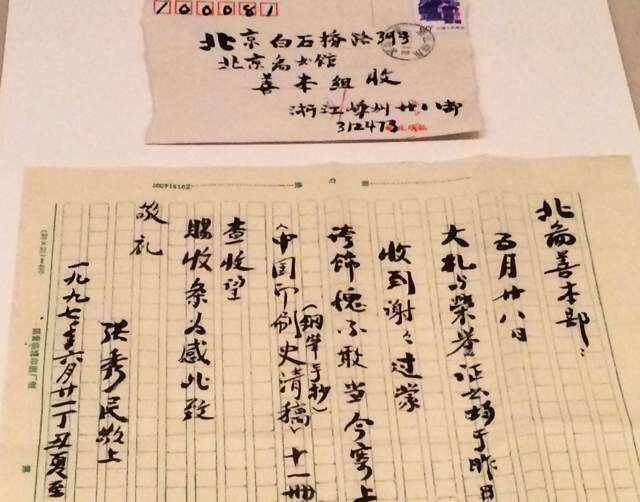 100081
北京白石桥路39号
北京图书馆
善本组收
浙江嵊州廿八都
312473
北图善本部：
五月廿八日
大札与荣誉证书均于昨日
收到谢々过蒙
夸饰愧不敢当今寄上
《中国印刷史清稿》十一册
（钢笔手抄）
查收望
赐收条为感此致
敬礼
张秀民敬上
一九九七年六月廿一丁丑夏至